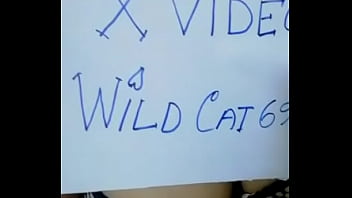 X VIDEO
WILD CAT 69